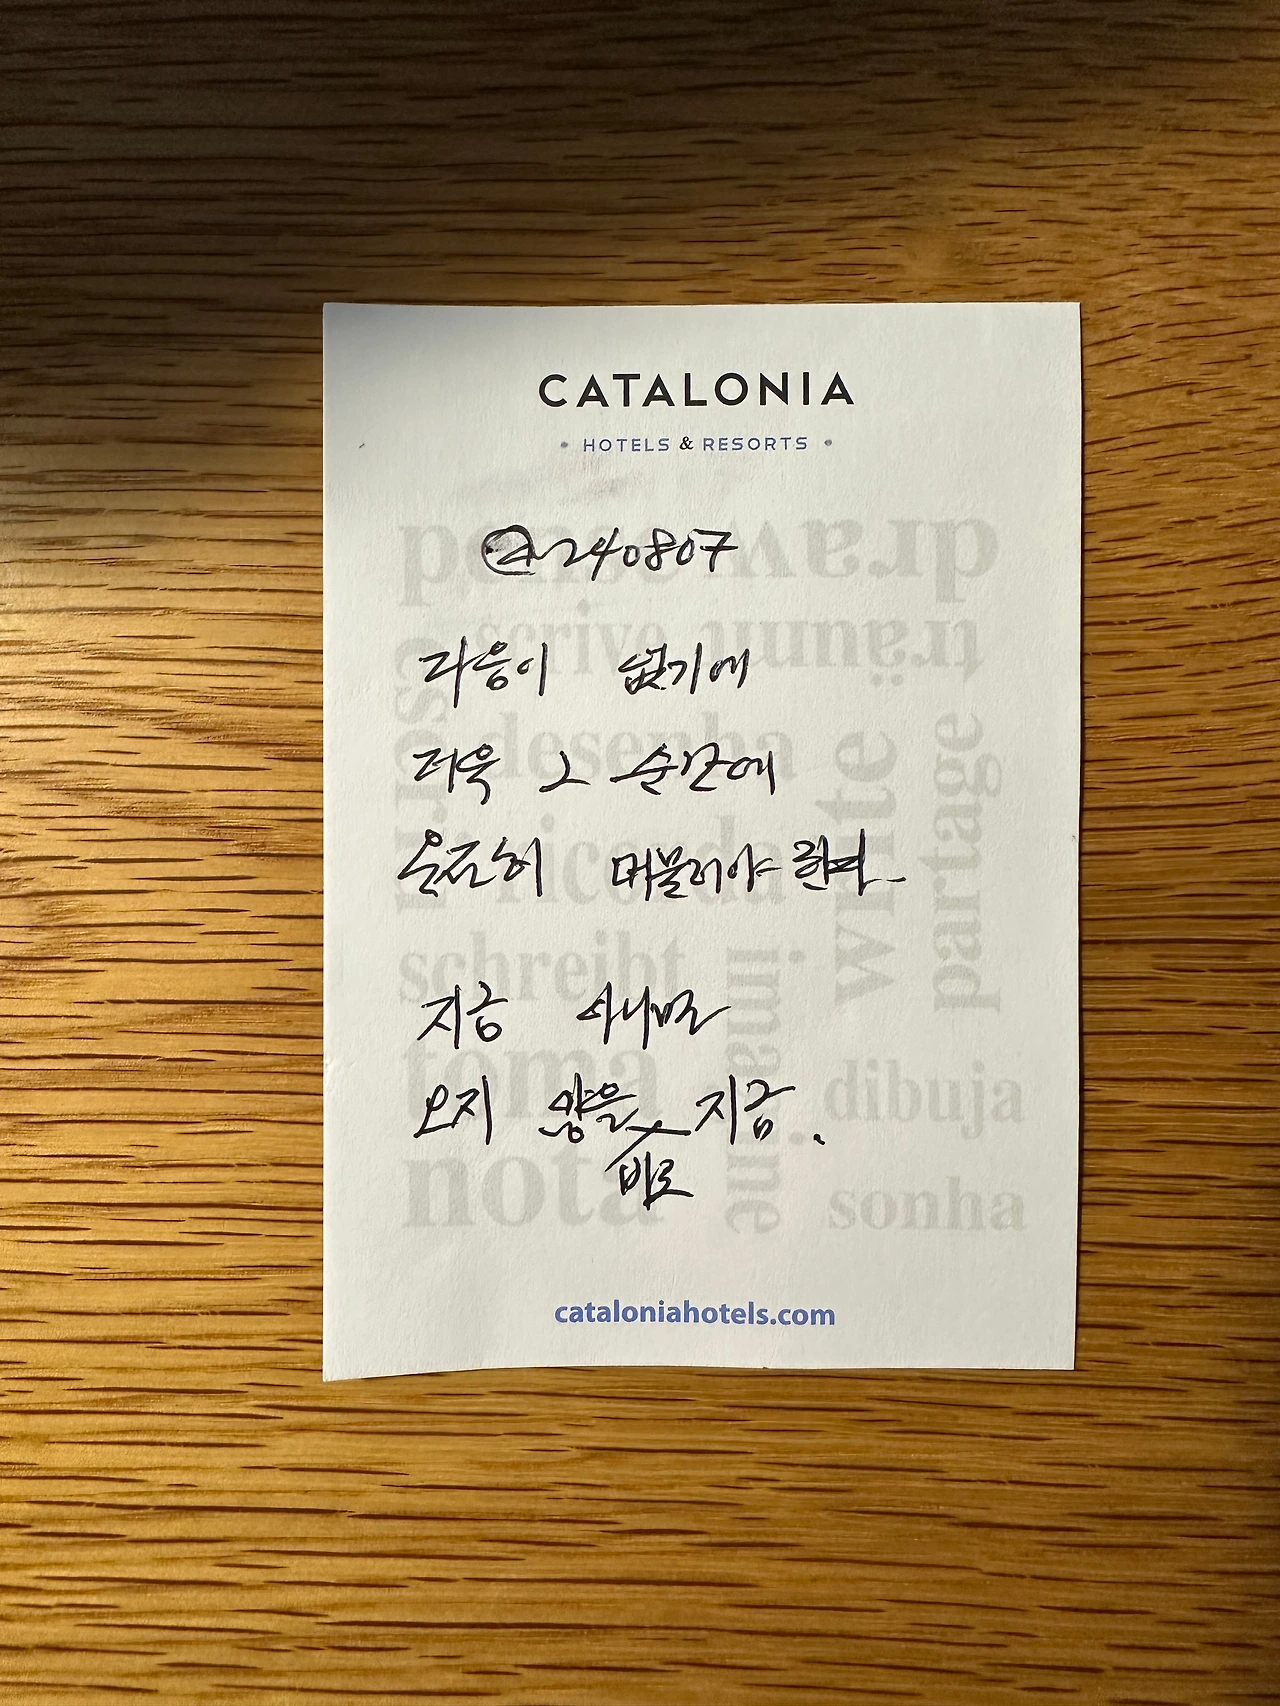 CATALONIA
• HOTELS & RESORTS •
@240807
다음이 없기에
더욱 그 순간에
온전히 머물러야 한다
지금 아니면
오지 않을 지금.
바로
pensa
draw
escriu
scrive
träumt
desenha
write
partage
ricorda
schreibt
imagine
toma
nota
dibuja
sonha
cataloniahotels.com